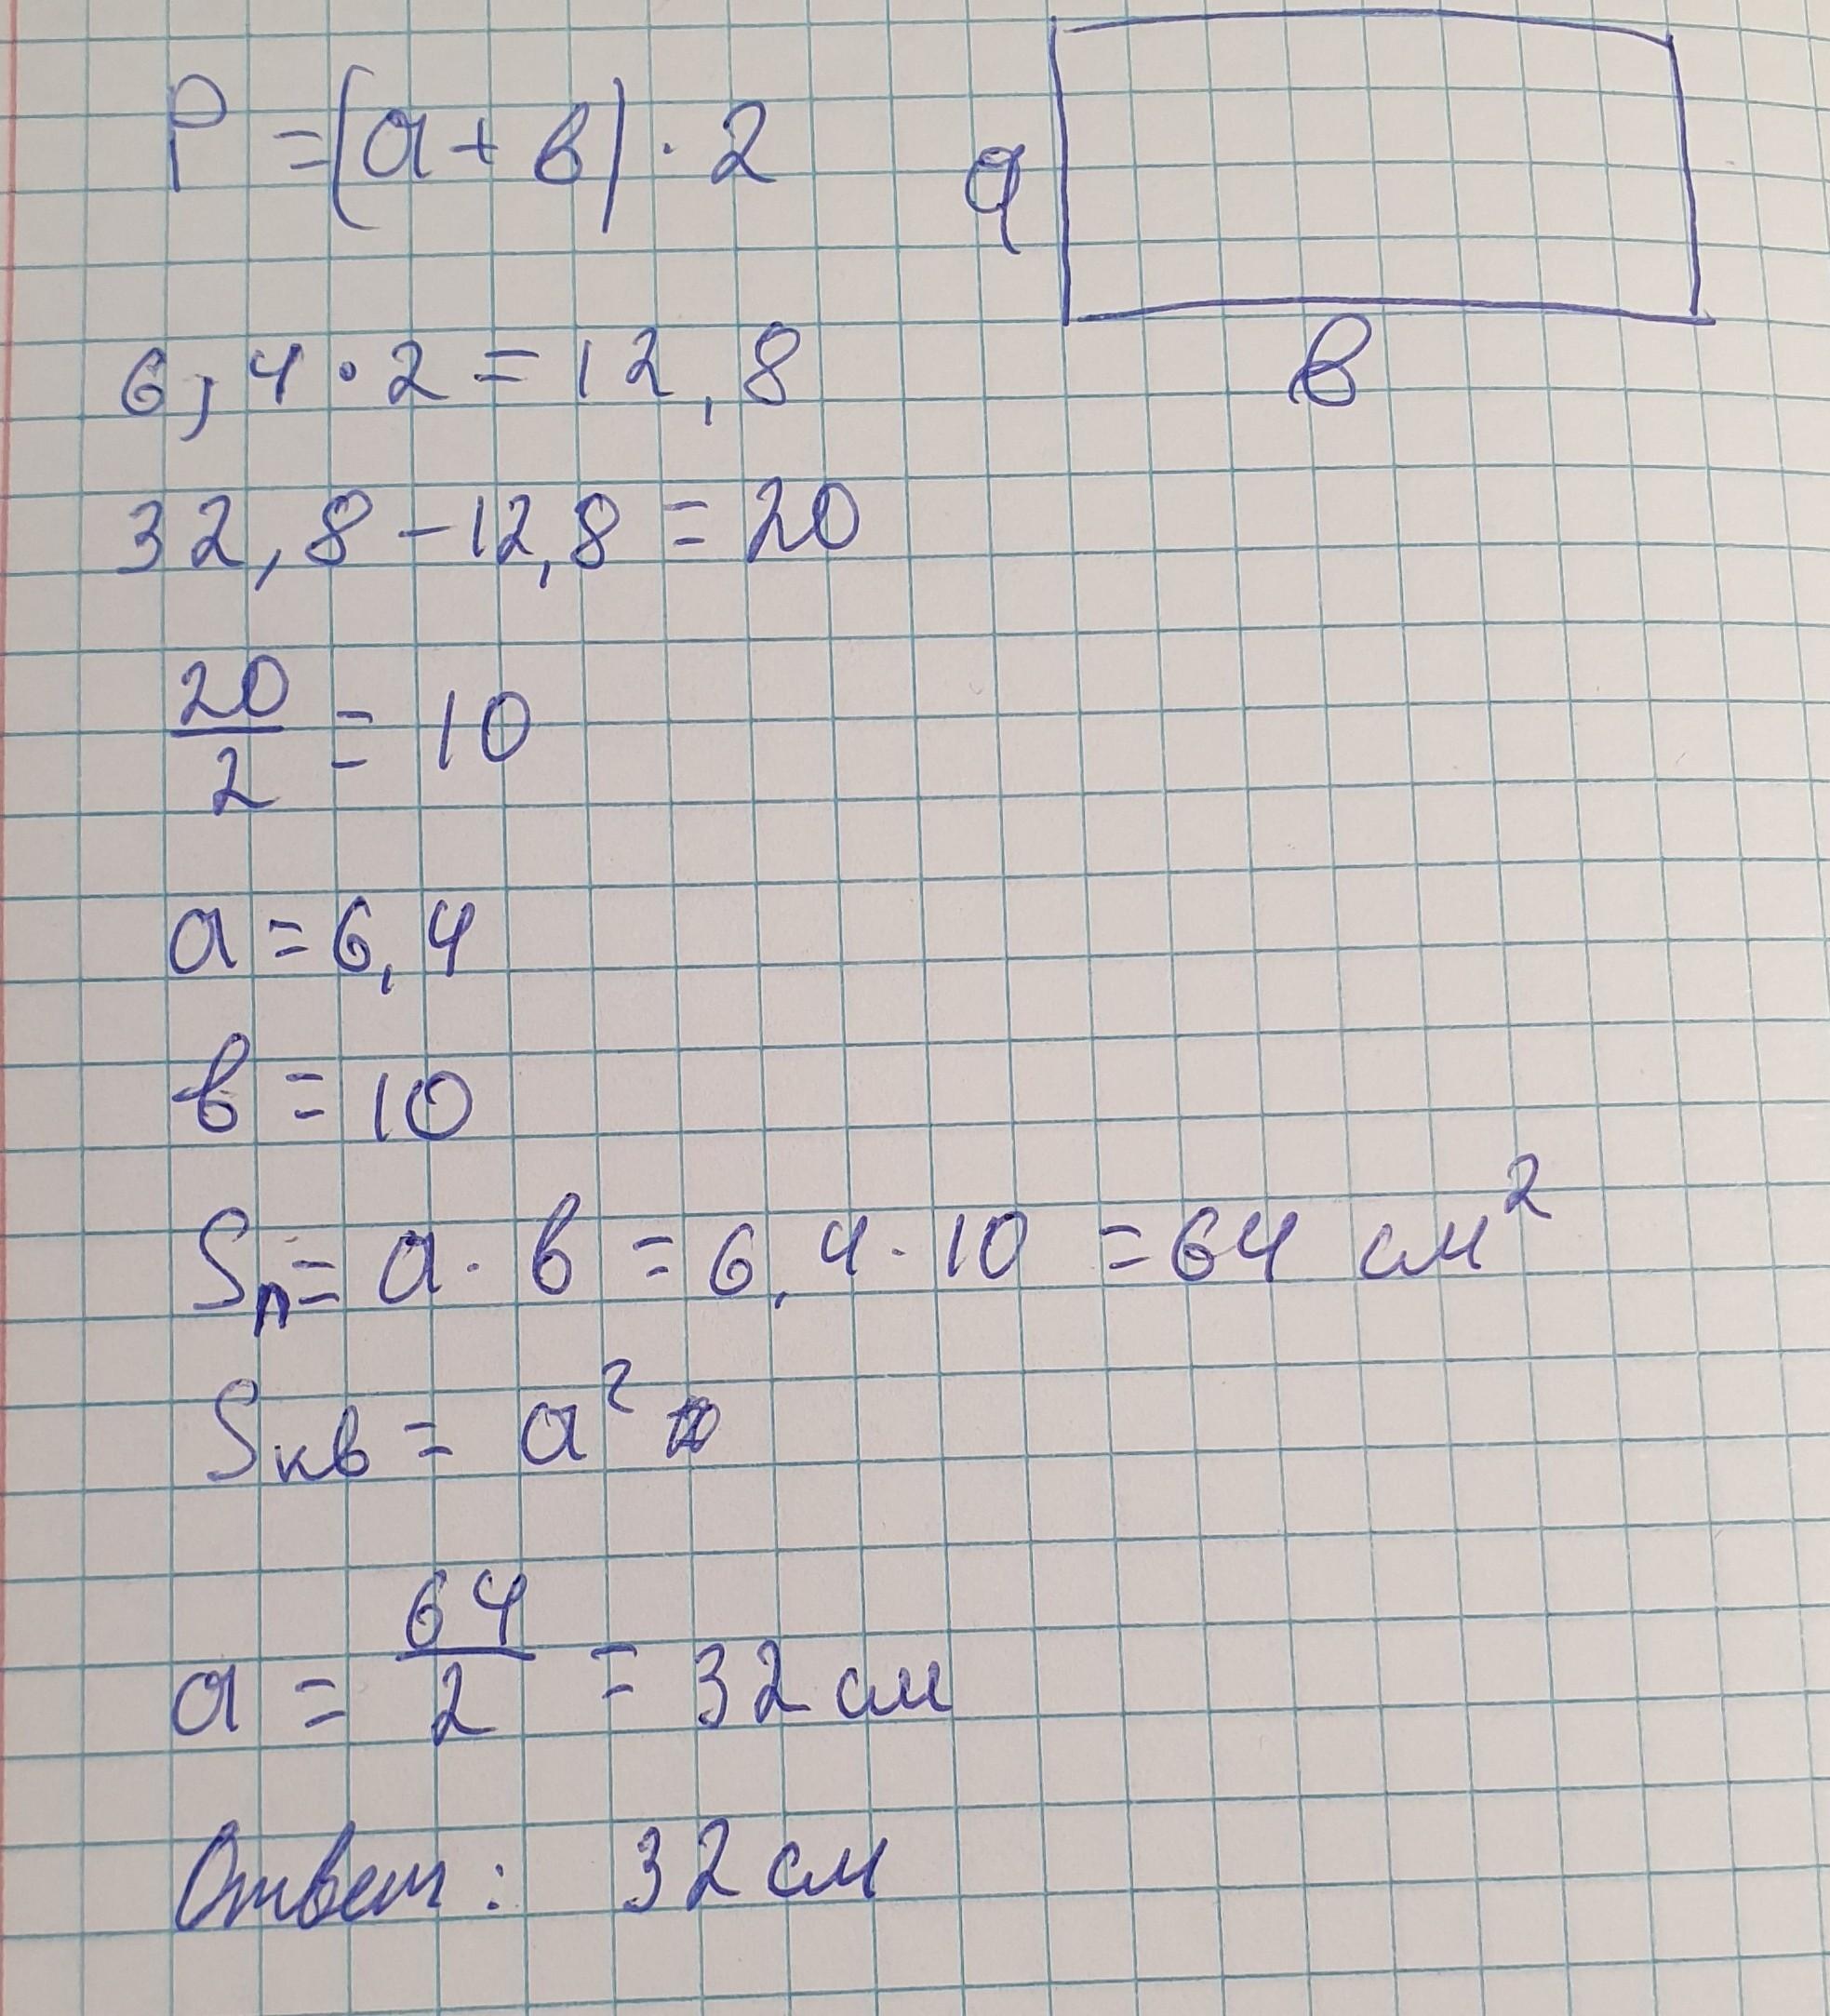 P = (a + b) · 2
a
b
6,4 · 2 = 12,8
32,8 - 12,8 = 20
20/2 = 10
a = 6,4
b = 10
Sп = a · b = 6,4 · 10 = 64 см²
Sкв = a²
a = 64/2 = 32 см
Ответ: 32 см